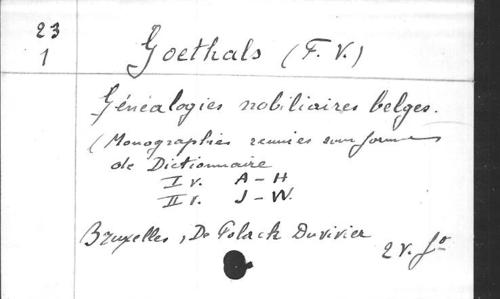 23
1
Goethals (F. V.)
Généalogies nobiliaires belges.
(Monographies reunies sous forme
de Dictionnaire
I v. A - H
II v. J - W.
Bruxelles, De Polack Duvivier
2 v. fo